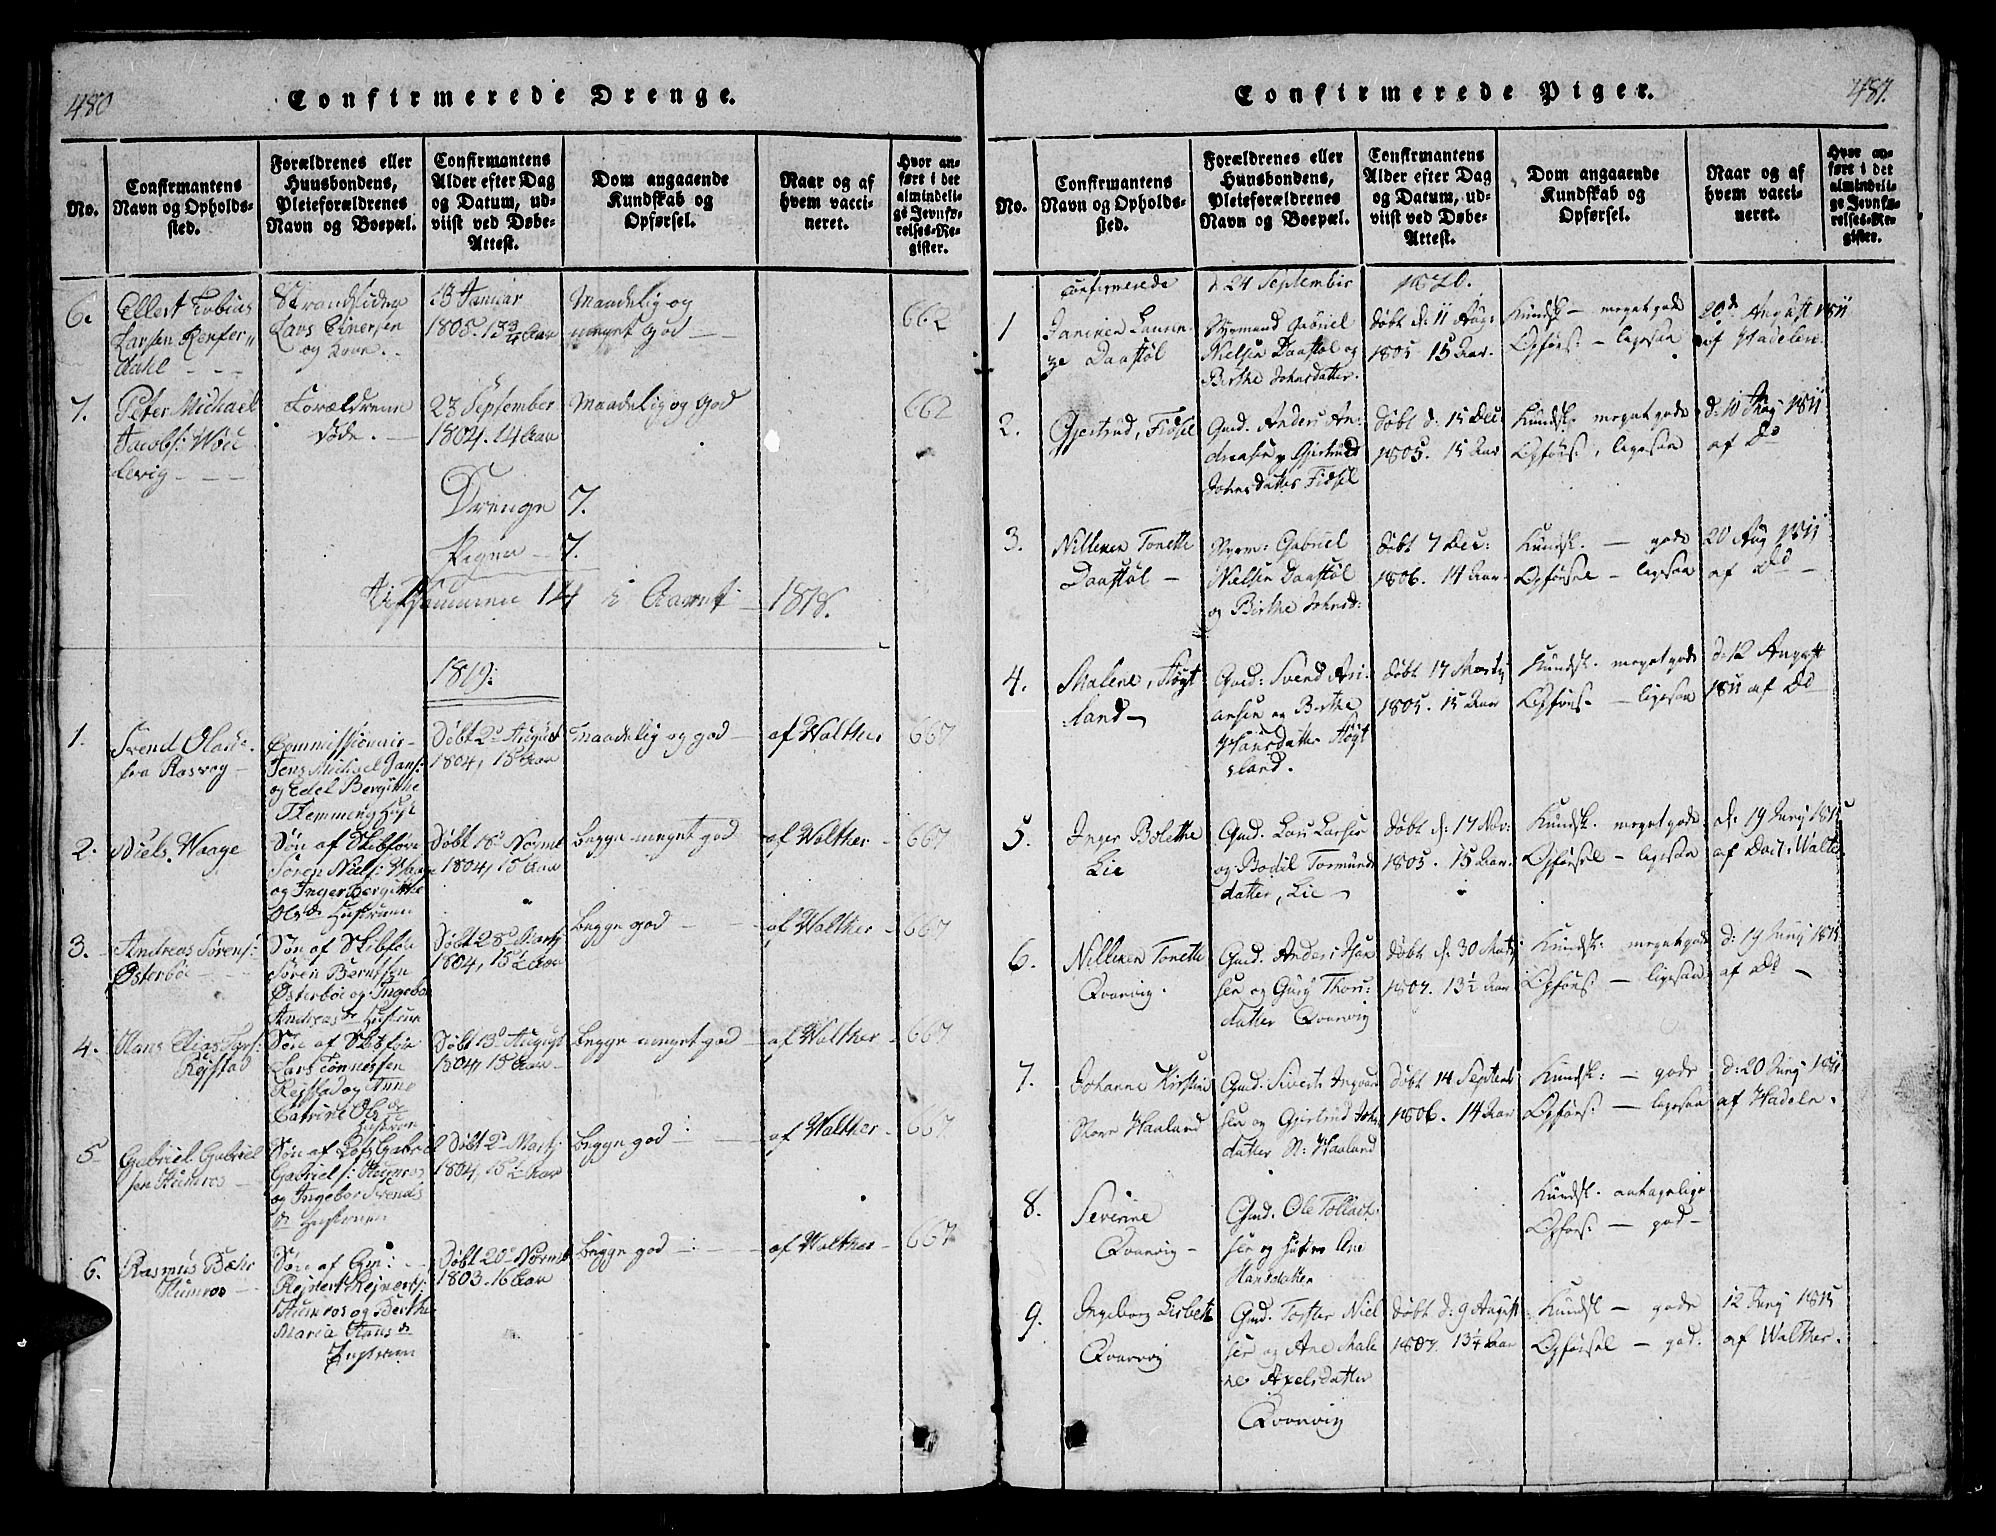 480
Confirmerede Drenge.
No.
Confirmantens
Navn og Opholds-
sted.
Forældrenes eller
Huusbondens,
Pleieforældrenes
Navn og Boepæl.
Confirmantens
Alder efter Dag
og Datum, ud-
viist ved Døbe-
Attest.
Dom angaaende
Kundskab og
Opførsel.
Naar og af
hvem vacci-
neret.
Hvor an-
ført i det
almindeli-
ge Jevnfø-
relses-Re-
gister.
6.
Ellert Tobias
Larsen
Lars Einersen
og Kone.
13 Januar
1805. 13 3/4 Aar
Maadelig og
meget god
662
7.
Peter Michael
Jacobs:
Forældrene
døde.
23 September
1804. 14 Aar
Maadelig og god
662
Drenge 7.
Pigen 7.
Tilsammen 14 i Aaret 1818.
1819:
1.
Svend Olai
fra Rasvog
Commissionair
Jens Michael Jans:
og Edel Bergitthe
Flemming Hust
Døbt 2d August
1804, 15 Aar
Maadelig og god
af Walther
667
2.
Niels Waage
Søn af Skibfører
Søren Niels: Waage
og Inger Bergitthe
Ols dr Hustruen
Døbt 18d Novemb
1804, 15 Aar
begge meget god
af Walther
667
3.
Andreas Sørens:
Østerbøe
Søn af Skibsfør
Søren Berntsen
Østerbøe og Ingebor
Andreas dr Hustrue
Døbt 28d Martj
1804, 15 1/2 Aar
begge god
af Walther
667
4.
Hans Elias Lars:
Rejstad
Søn af Skibsfør
Lars Tønnessen
Rejstad og Anne
Catrine Ols dr
Hustruen
Døbt 13d August
1804, 15 Aar
begge meget god
af Walther
667
5
Gabriel Gabriel
sen Humros
Søn af Lots Gabriel
Gabriels: Humros
og Ingebor Svends
dr Hustruen
Døbt 2d Martj
1804, 15 1/2 Aar
begge god
af Walther
667
6.
Rasmus Bæhr
Humros
Søn af Gm:
Rejnert Rejnerts:
Humros og Berthe
Maria Hans dr
Hustruen
Døbt 20d Novemb
1803. 16 Aar
begge god
af Walther
667
481.
Confirmerede Piger.
No.
Confirmantens
Navn og Opholds-
sted.
Forældrenes eller
Huusbondens,
Pleieforældrenes
Navn og Boepæl.
Confirmantens
Alder efter Dag
og Datum, ud-
viist ved Døbe-
Attest.
Dom angaaende
Kundskab og
Opførsel.
Naar og af
hvem vacci-
neret.
Hvor an-
ført i det
almindeli-
ge Jevnfø-
relses-Re-
gister.
confirmerede d 24 September 1820.
1
Janiken Lauren
ze Daastøl
Styrmand Gabriel
Nielsen Daastøl og
Birthe Johnsdatter.
døbt d: 11 Aug:
1805 15 Aar.
Kundsk - meget gode
Opførs - ligesaa
20d August 1811
af Hadelen.
2.
Gjertrud, Fidsel
Gmd. Anders An-
dreasen og Gjertrud
Johnsdatter Fidsel
døbt d: 15 Dec
1805. 15 Aar
Kundsk. meget gode
Opførs. ligesaa
af Do
3.
Nilleken Tonette
Daastøl
Styrm: Gabriel
Nielsen Daastøl
og Birthe Johnsd:
døbt 7 Dec:
1806. 14 Aar
Kundsk. - gode
Opførsel - ligesaa
20 Aug 1811
af Do
4.
Malene, Høgt
sland
Gmd: Svend Ari-
ansen og Berthe
Hansdatter Høgt
sland.
døbt 17 Martj
1805. 15 Aar
Kundsk. meget gode
Opførs. - ligesaa
d: 12 August
1811 af Do
5.
Inger Bolethe
Lie
Gmd. Lars Larsen
og Bodil Tormunds
datter, Lie
døbt d: 17 Nov:
1805. 15 Aar
Kundsk. meget gode
Opførsel - ligesaa
d: 19 Junj 1815
6.
Nilleken Tonette
Qvarvig.
Gmd. Anders
sen og Gurj Thors
datter Qvarvig
døbt d: 30 Martj
1807. 13 1/2 Aar
Kundsk: meget gode
Opførs - ligesaa
d: 19 Junj 1815
af Do
7.
Johanne Kirstine
Store Haaland
Gmd: Siverts Ingvar
sen og Gjertrud Johns
datter St: Haaland
døbt 14 Septemb
1806. 14 Aar
Kundsk: - gode
Opførs: - ligesaa
d: 20 Junj 1811
af Hadeln.
8.
Severine
Qvarvig
Gmd. Ole Tollact
sen og Hustru Ane
Hansdatter
Kundsk. antagelige
Opførs: - god
9.
Ingeborg Lisbeth
Qvarvig
Gmd. Tosten Niel
sen og Ane Male
ne Axelsdatter
Qvarvig
døbt d: 9 August
1807. 13 1/4 Aar
Kundsk - gode
Opførsel - god.
12 Junj 1815
af Walther.